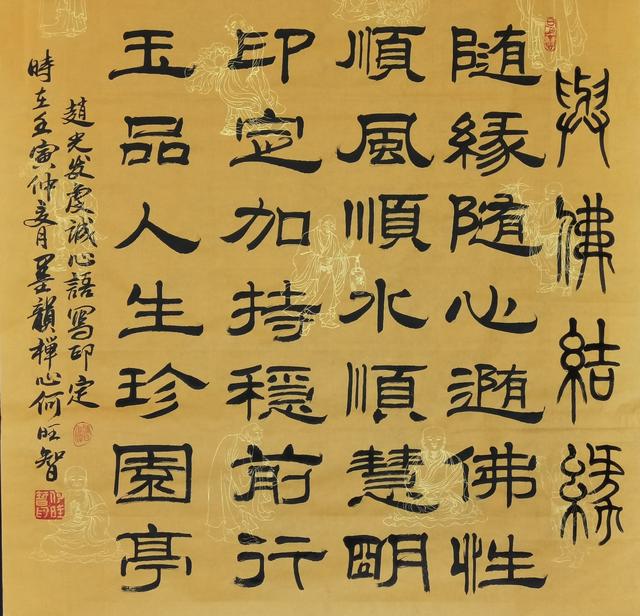 與佛結緣
随緣随心遁佛性
順風順水順慧眀
印定加持穩前行
玉品人生珍園亭
趙光发虔誠心語寫印定
時在壬寅仲夏月墨韻禅心何旺智